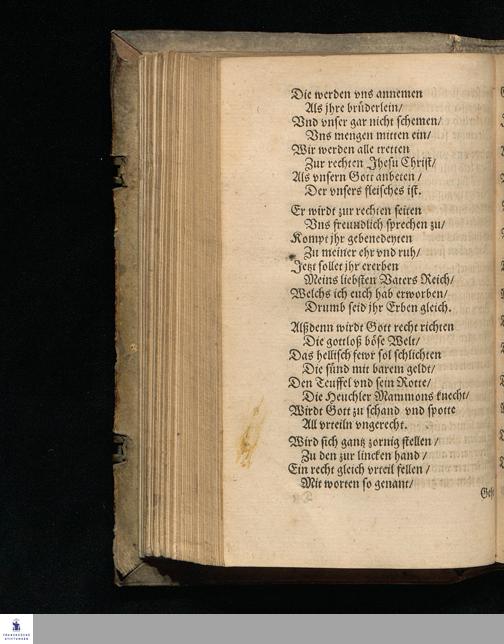 Die werden vns annemen
Als jhre brüderlein/
Vnd vnser gar nicht schemen/
Vns mengen mitten ein/
Wir werden alle tretten
Zur rechten Jhesu Christ/
Als vnsern Gott anbeten /
Der vnsers fleisches ist.
Er wirdt zur rechten seiten
Vns freundlich sprechen zu/
Kompt jhr gebenedeyten
Zu meiner ehr vnd ruh/
Jetzt sollet jhr ererben
Meins liebsten Vaters Reich/
Welchs ich euch hab erworben/
Drumb seid jhr Erben gleich.
Alßdenn wirdt Gott recht richten
Die gottloß böse Welt/
Das hellisch fewr sol schlichten
Die sünd mit barem geldt/
Den Teuffel vnd sein Rotte/
Die Heuchler Mammons knecht/
Wirdt Gott zu schand vnd spotte
All vrteiln vngerecht.
Wird sich gantz zornig stellen /
Zu den zur lincken hand /
Ein recht gleich vrteil fellen /
Mit worten so genant/
Geht
FRANCKESCHE
STIFTUNGEN